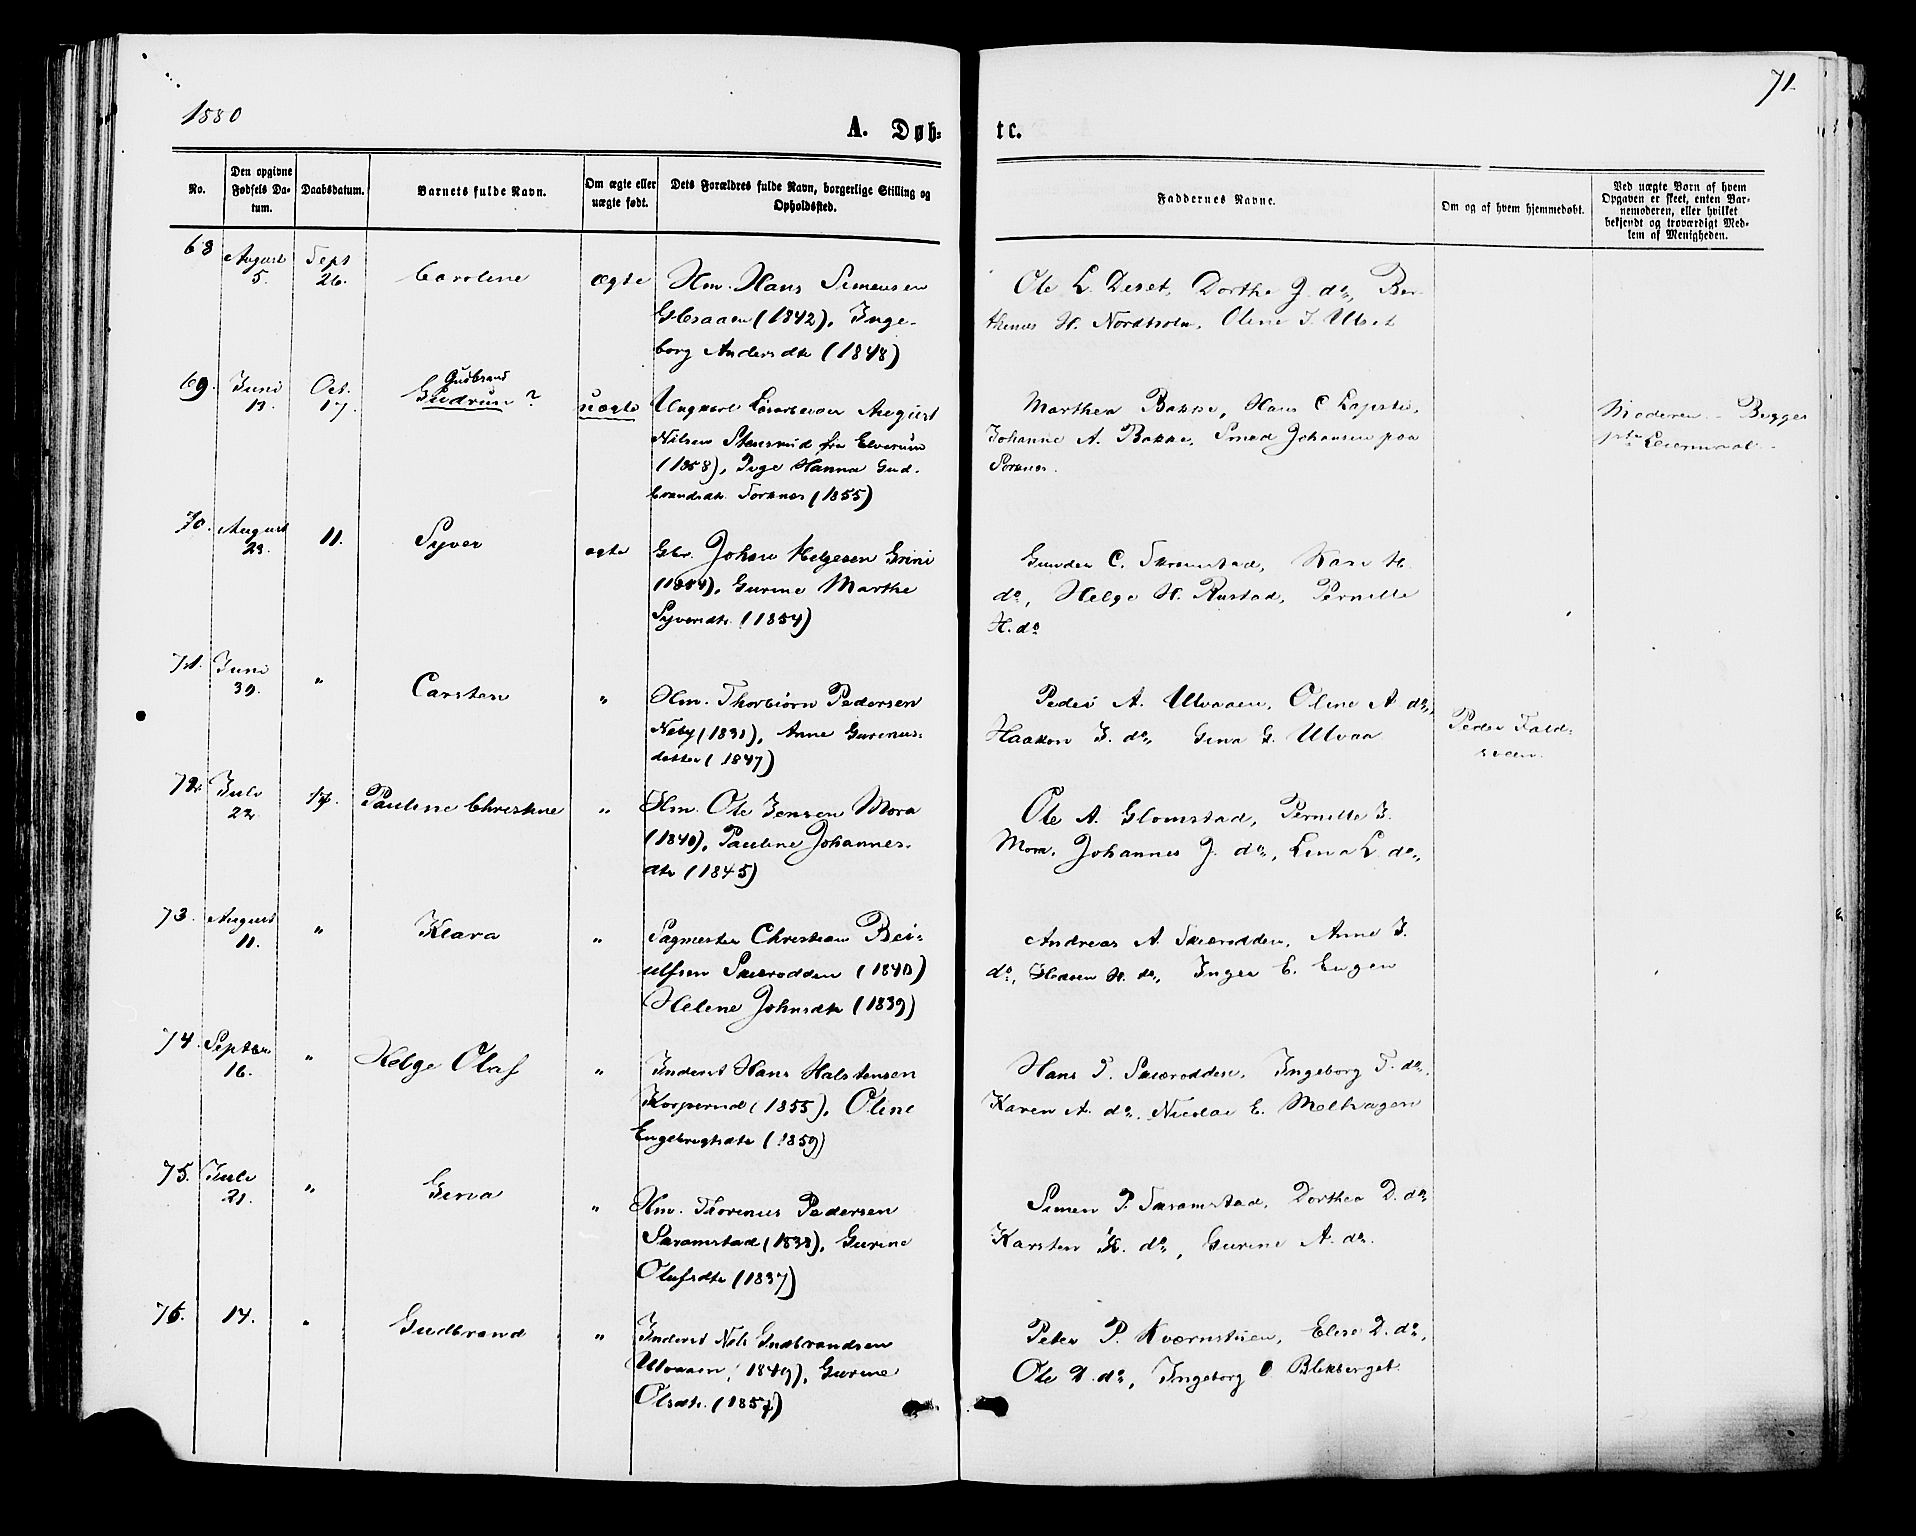 1880
71
A. Døb-
te.
No.
Den opgivne Fødsels Da- tum.
Daabsdatum.
Barnets fulde Navn.
Om ægte eller uægte født.
Dets Forældres fulde Navn, borgerlige Stilling og Opholdssted.
Faddernes Navne.
Om og af hvem hjemmedøbt.
Ved uægte Børn af hvem Opgaven er skeet, enten Bar- nemoderen, eller hvilket bekjendt og troværdigt Med- lem af Menigheden.
68 August 5. Sept 26. Caroline ægte Hm. Hans Simensen
(1842), Inge-
borg Andersdtr (1848)
Ole L. Deset, Dorthe J. do, Ber-
thinus H. Nordholm, Oline J.
69. Juni 13. Oct. 17. Gudbrand
Gudrun? uægte Ungkarl August
Nilsen Stensrud fra Elverum
(1858), Pige Hanna Gud-
brandsdtr. Torsnes (1855)
Marthea Bakke, Hans C
Johanne A. Bakke, Johansen paa
Moderen. - Begges
Leiermaal.
70. August 29. 11. Syver ægte Gbr. Johan Helgesen Grini
(1854), Gurine Marthe
Syversdtr. (1854)
Gunder C. Kari H.
do, Helge H. Rustad, Pernille
H. do
71. Juni 30. " Carsten " Hm. Thorbiørn Pedersen
Neby (1831), Anne Gurinus-
datter (1847)
Peder A. Ulvaaen, Oline A do,
Haakon J. do, Gina G. Ulvaa
Peder
72. Juli 22. 17. Pauline Christine " Hm. Ole Jensen Mora
(1840), Pauline Johannes-
dtr (1845)
Ole A. Glomstad, Pernille J.
Mora, Johannes J. do, Lina L. do,
73. August 11. " Klara " Sagmester Christian Bei-
ulfsen Skærodden (1840)
Helene Johnsdtr (1839)
Andreas A. Skærodden, Anne J.
do, H. do, Inger E. Engen
74. Septbr 16. " Helge Olaf " Inderst Hans Halstensen
(1855), Oline
Engebregtsdtr (1859)
Hans T. Skærodden, Ingeborg T. do,
Karen A. do, Nicolai E.
75. Juli 21. " Gina " Hm. Thorinus Pedersen
(1838), Gurine
Olufsdtr (1837)
Simen P. Dorthea D. do,
Karsten K. do, Gurine A. do.
76. 14. " Gudbrand " Inderst Nils Gudbrandsen
Ulvaaen, (1849), Gurine
Olsdtr. (1857)
Peder P. Kværnstuen, Elise D. do,
Ole D. do, Ingeborg O Blekberget